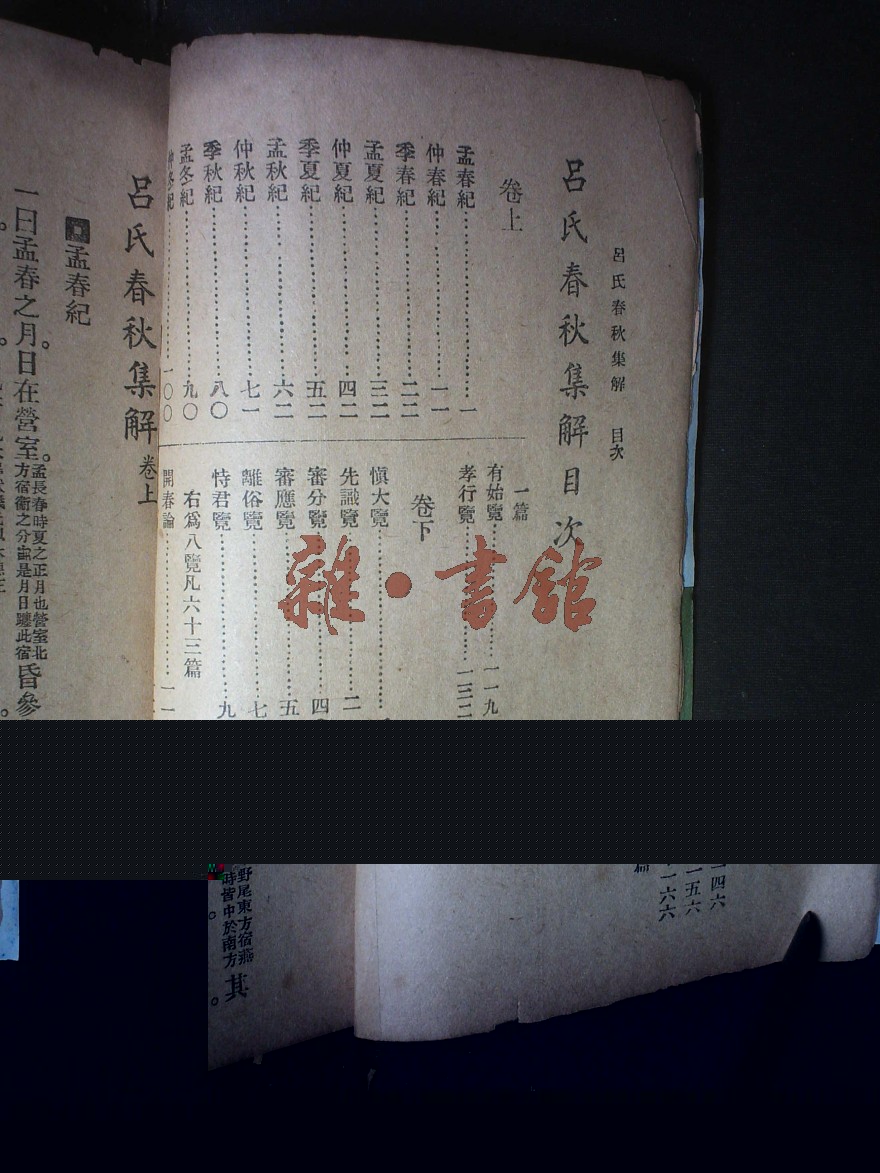 呂氏春秋集解 目次
呂氏春秋集解目次
卷上
孟春紀 一
仲春紀 一一
季春紀 二二
孟夏紀 三二
仲夏紀 四二
季夏紀 五二
孟秋紀 六二
仲秋紀 七一
季秋紀 八〇
孟冬紀 九〇
仲冬紀 一〇〇
一篇
有始覽 一一九
孝行覽 一三二
卷下
慎大覽
先識覽 二
審分覽 四
審應覽 五
離俗覽 七
恃君覽 九
右爲八覽凡六十三篇
開春論 一一
雜·書館
呂氏春秋集解 卷上
孟春紀
一曰孟春之月。日在營室。孟長春時夏之正月也營室北方宿衞之分野是月日躔此宿昏參
一五六
一六六
野尾東方宿燕
時皆中於南方
其